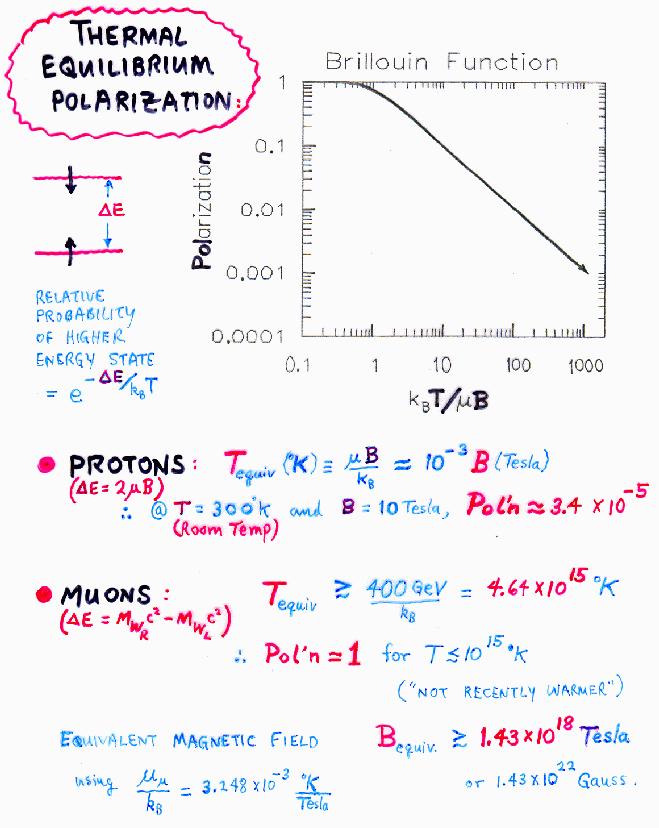 THERMAL
EQUILIBRIUM
POLARIZATION:
Brillouin Function
1
0.1
0.01
0.001
0.0001
Polarization
0.1 1 10 100 1000
k_BT/μB
ΔE
RELATIVE
PROBABILITY
OF HIGHER
ENERGY STATE
= e^{-ΔE/k_BT}
● PROTONS: T_equiv (°K) ≡ μB/k_B ≈ 10^{-3} B (Tesla)
(ΔE = 2μB)
∴ @ T = 300°K and B = 10 Tesla, Pol'n ≈ 3.4 × 10^{-5}
(Room Temp)
● MUONS: T_equiv ≳ 400 GeV/k_B = 4.64×10^{15} °K
(ΔE = M_{W_R}c² - M_{W_L}c²)
∴ Pol'n ≃ 1 for T ≲ 10^{15} °K
("NOT RECENTLY WARMER")
EQUIVALENT MAGNETIC FIELD B_equiv. ≳ 1.43×10^{18} Tesla
using μ_μ/k_B = 3.248×10^{-3} °K/Tesla or 1.43×10^{22} Gauss.